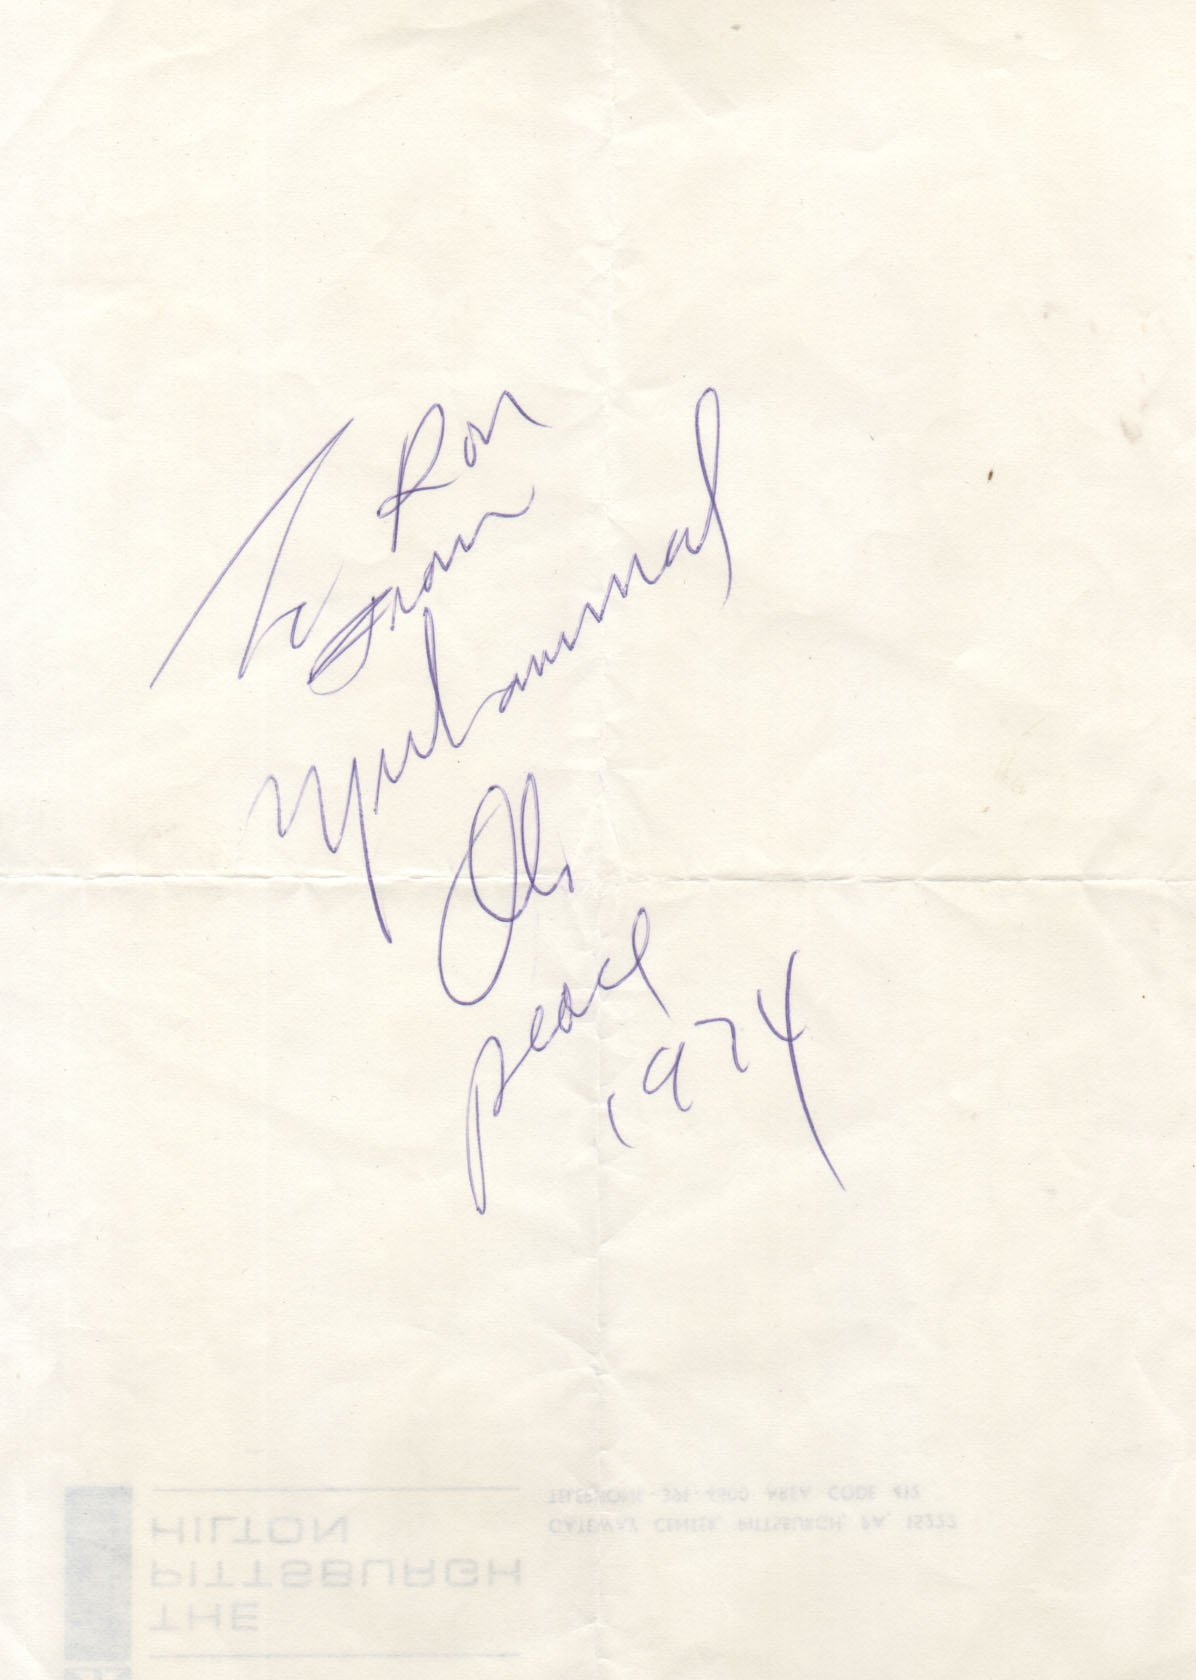 To Ron
From
Muhammad
Ali
peace
1974
TELEPHONE - 391-4600 AREA CODE 412
GATEWAY CENTER, PITTSBURGH, PA. 15222
HILTON
PITTSBURGH
THE